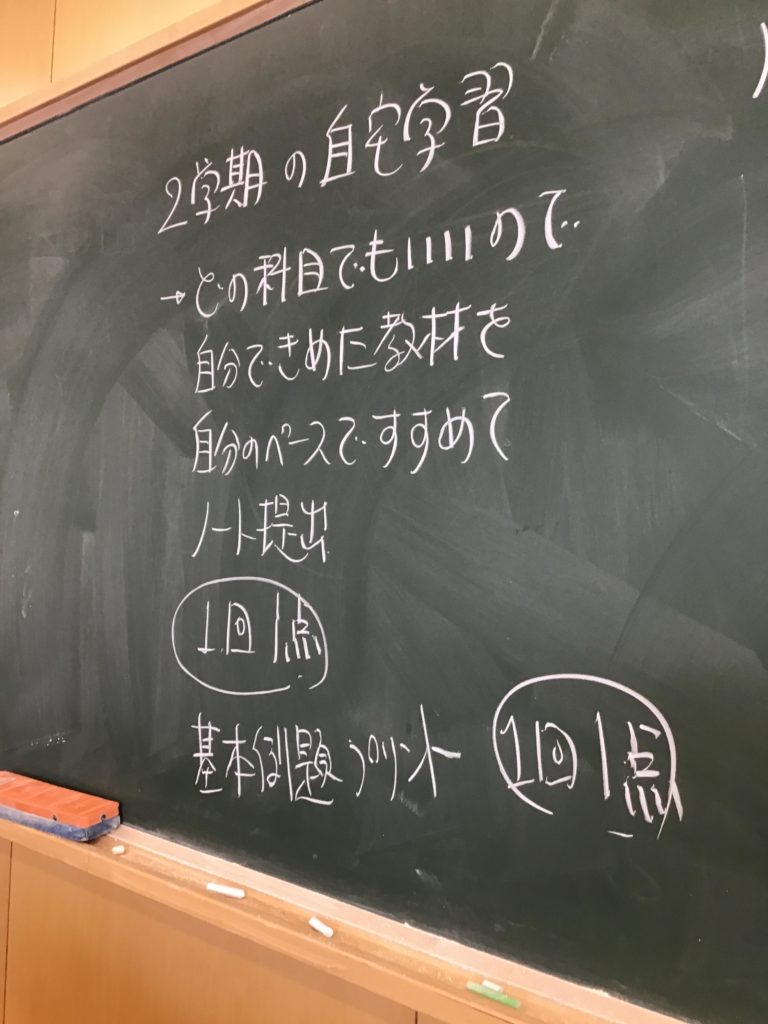 2学期の自宅学習
→どの科目でもいいので
自分できめた教材を
自分のペースですすめて
ノート提出
1回1点
基本例題プリント 1回1点